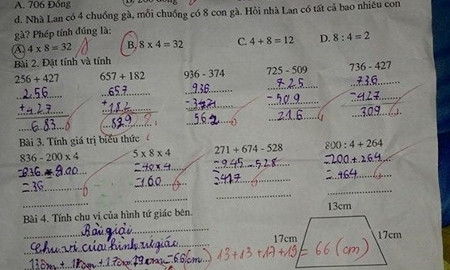 A. 706 Đồng
d. Nhà Lan có 4 chuồng gà, mỗi chuồng có 8 con gà. Hỏi nhà Lan có tất cả bao nhiêu con
gà? Phép tính đúng là:
A. 4 x 8 = 32 B. 8 x 4 = 32 C. 4 + 8 = 12 D. 8 : 4 = 2
Bài 2. Đặt tính và tính
256 + 427 657 + 182 936 - 374 725 - 509 736 - 427
256 657 936 725 736
+427 +182 - 509 -427
683 829 562 216 309
Bài 3. Tính giá trị biểu thức
836 - 200 x 4 5 x 8 x 4 271 + 674 - 528 800 : 4 + 264
=40 x 4 =945 - 528 =200 + 264
=36 =160 =417 =464
Bài 4. Tính chu vi của hình tứ giác bên.
Bài giải
Chu vi của hình tứ giác
13cm
17cm 17cm
13 + 13 + 17 + 13 = 66 (cm)